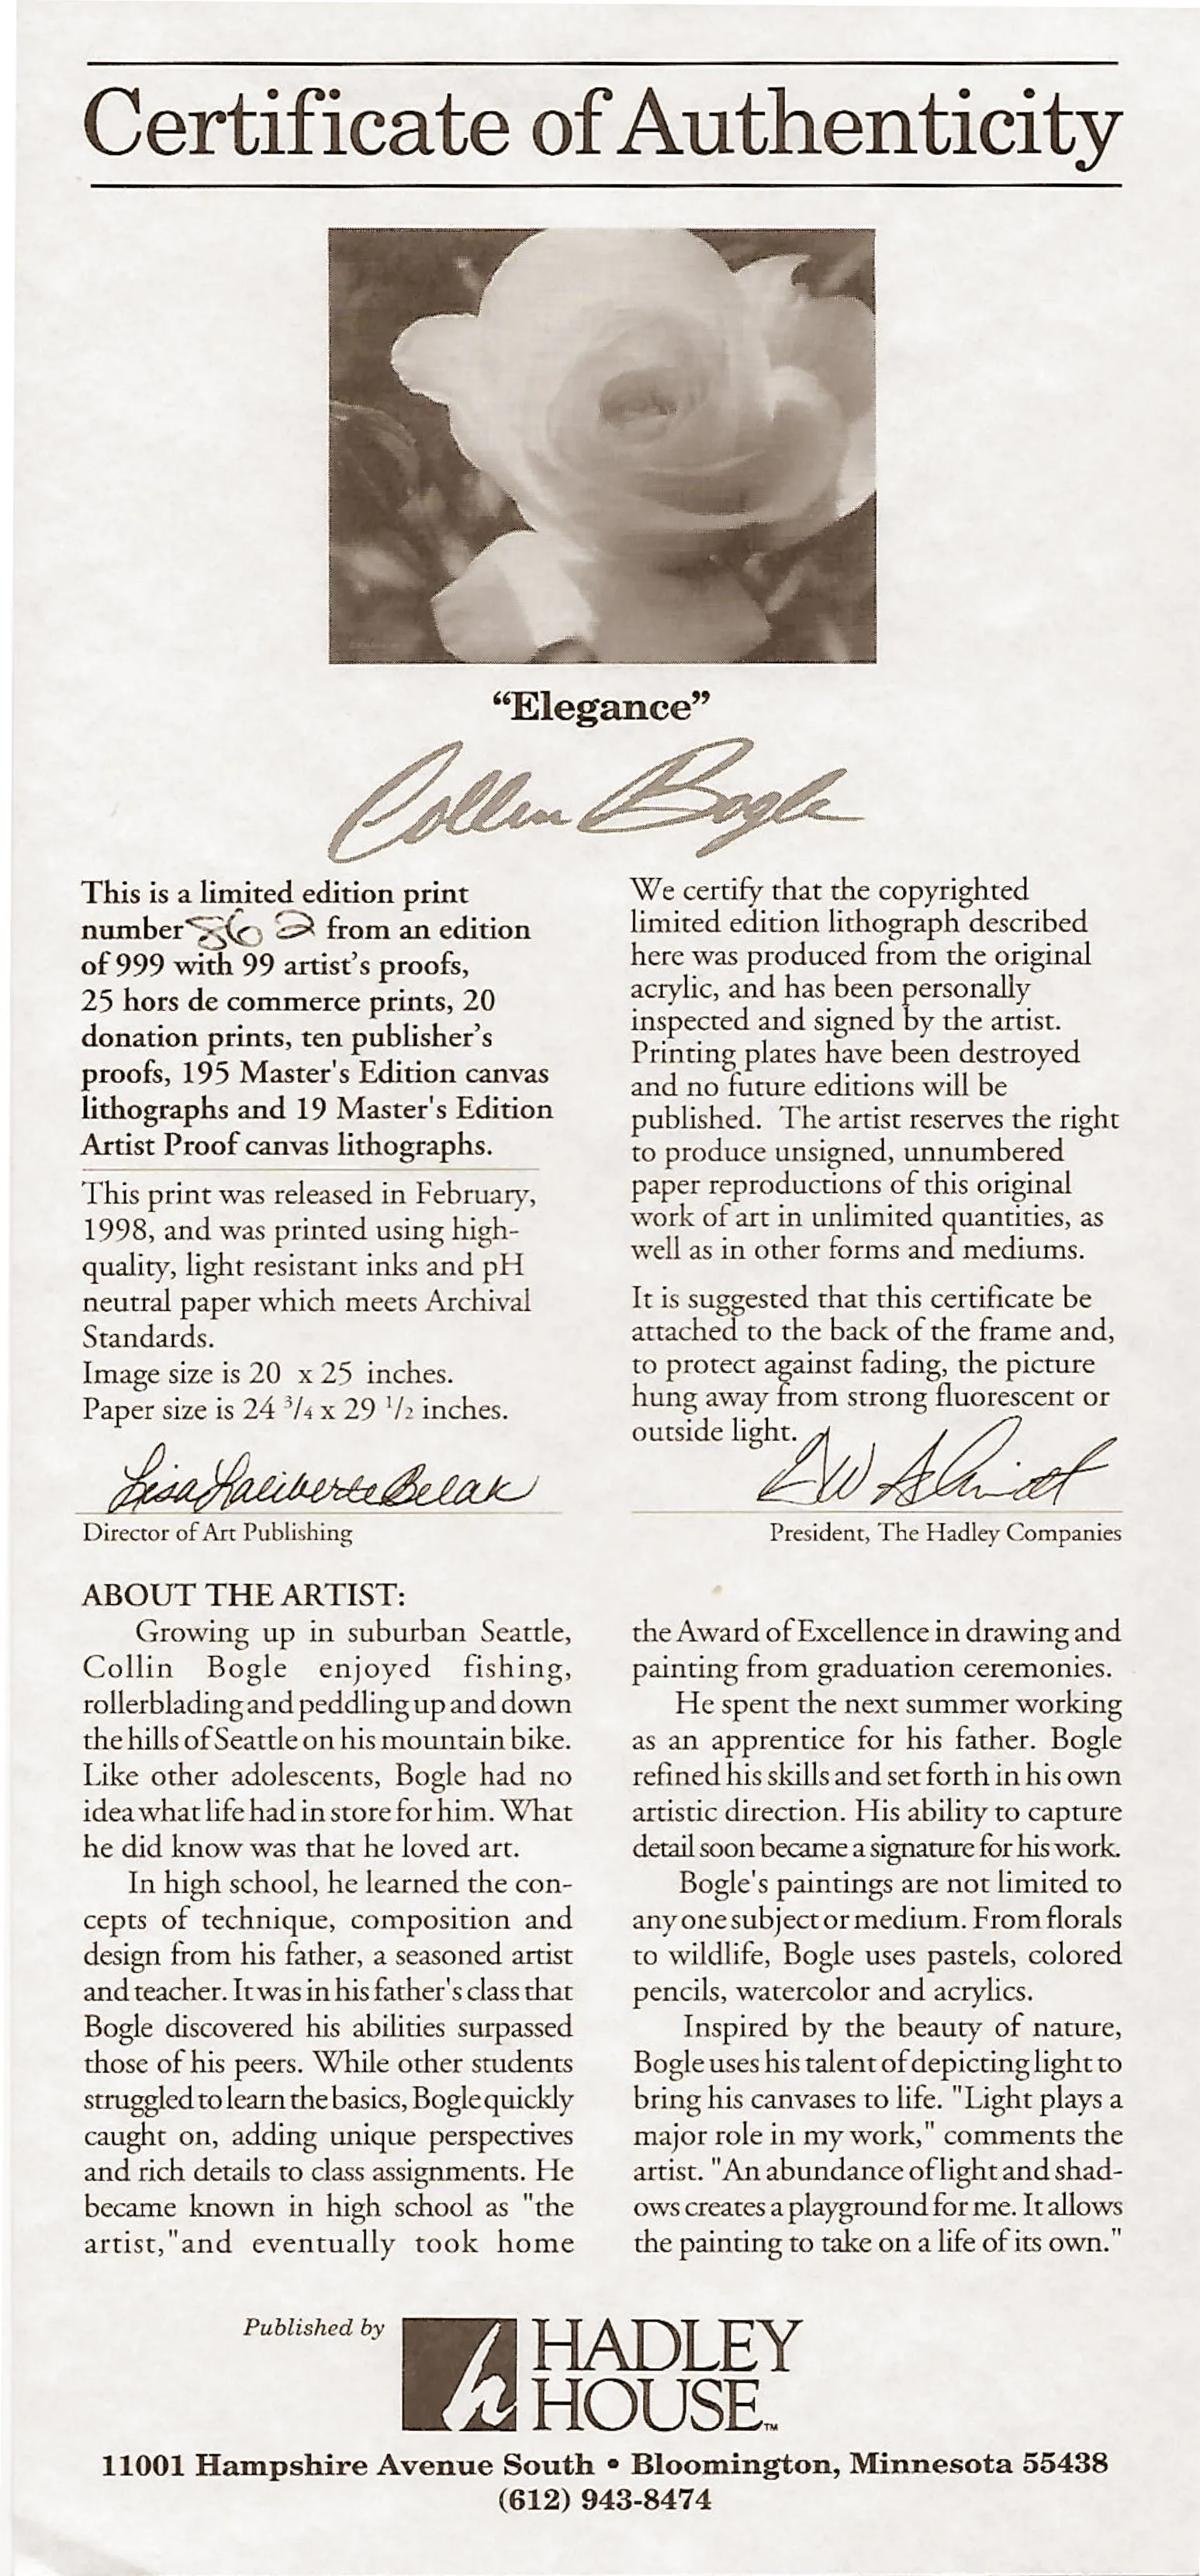 Certificate of Authenticity
“Elegance”
Collin Bogle
This is a limited edition print
number 862 from an edition
of 999 with 99 artist’s proofs,
25 hors de commerce prints, 20
donation prints, ten publisher’s
proofs, 195 Master's Edition canvas
lithographs and 19 Master's Edition
Artist Proof canvas lithographs.
This print was released in February,
1998, and was printed using high-
quality, light resistant inks and pH
neutral paper which meets Archival
Standards.
Image size is 20 x 25 inches.
Paper size is 24 3/4 x 29 1/2 inches.
Lisa Laliberte Belak
Director of Art Publishing
We certify that the copyrighted
limited edition lithograph described
here was produced from the original
acrylic, and has been personally
inspected and signed by the artist.
Printing plates have been destroyed
and no future editions will be
published. The artist reserves the right
to produce unsigned, unnumbered
paper reproductions of this original
work of art in unlimited quantities, as
well as in other forms and mediums.
It is suggested that this certificate be
attached to the back of the frame and,
to protect against fading, the picture
hung away from strong fluorescent or
outside light.
President, The Hadley Companies
ABOUT THE ARTIST:
Growing up in suburban Seattle,
Collin Bogle enjoyed fishing,
rollerblading and peddling up and down
the hills of Seattle on his mountain bike.
Like other adolescents, Bogle had no
idea what life had in store for him. What
he did know was that he loved art.
In high school, he learned the con-
cepts of technique, composition and
design from his father, a seasoned artist
and teacher. It was in his father's class that
Bogle discovered his abilities surpassed
those of his peers. While other students
struggled to learn the basics, Bogle quickly
caught on, adding unique perspectives
and rich details to class assignments. He
became known in high school as "the
artist,"and eventually took home
the Award of Excellence in drawing and
painting from graduation ceremonies.
He spent the next summer working
as an apprentice for his father. Bogle
refined his skills and set forth in his own
artistic direction. His ability to capture
detail soon became a signature for his work.
Bogle's paintings are not limited to
any one subject or medium. From florals
to wildlife, Bogle uses pastels, colored
pencils, watercolor and acrylics.
Inspired by the beauty of nature,
Bogle uses his talent of depicting light to
bring his canvases to life. "Light plays a
major role in my work," comments the
artist. "An abundance of light and shad-
ows creates a playground for me. It allows
the painting to take on a life of its own."
Published by
h HADLEY
HOUSE™
11001 Hampshire Avenue South • Bloomington, Minnesota 55438
(612) 943-8474